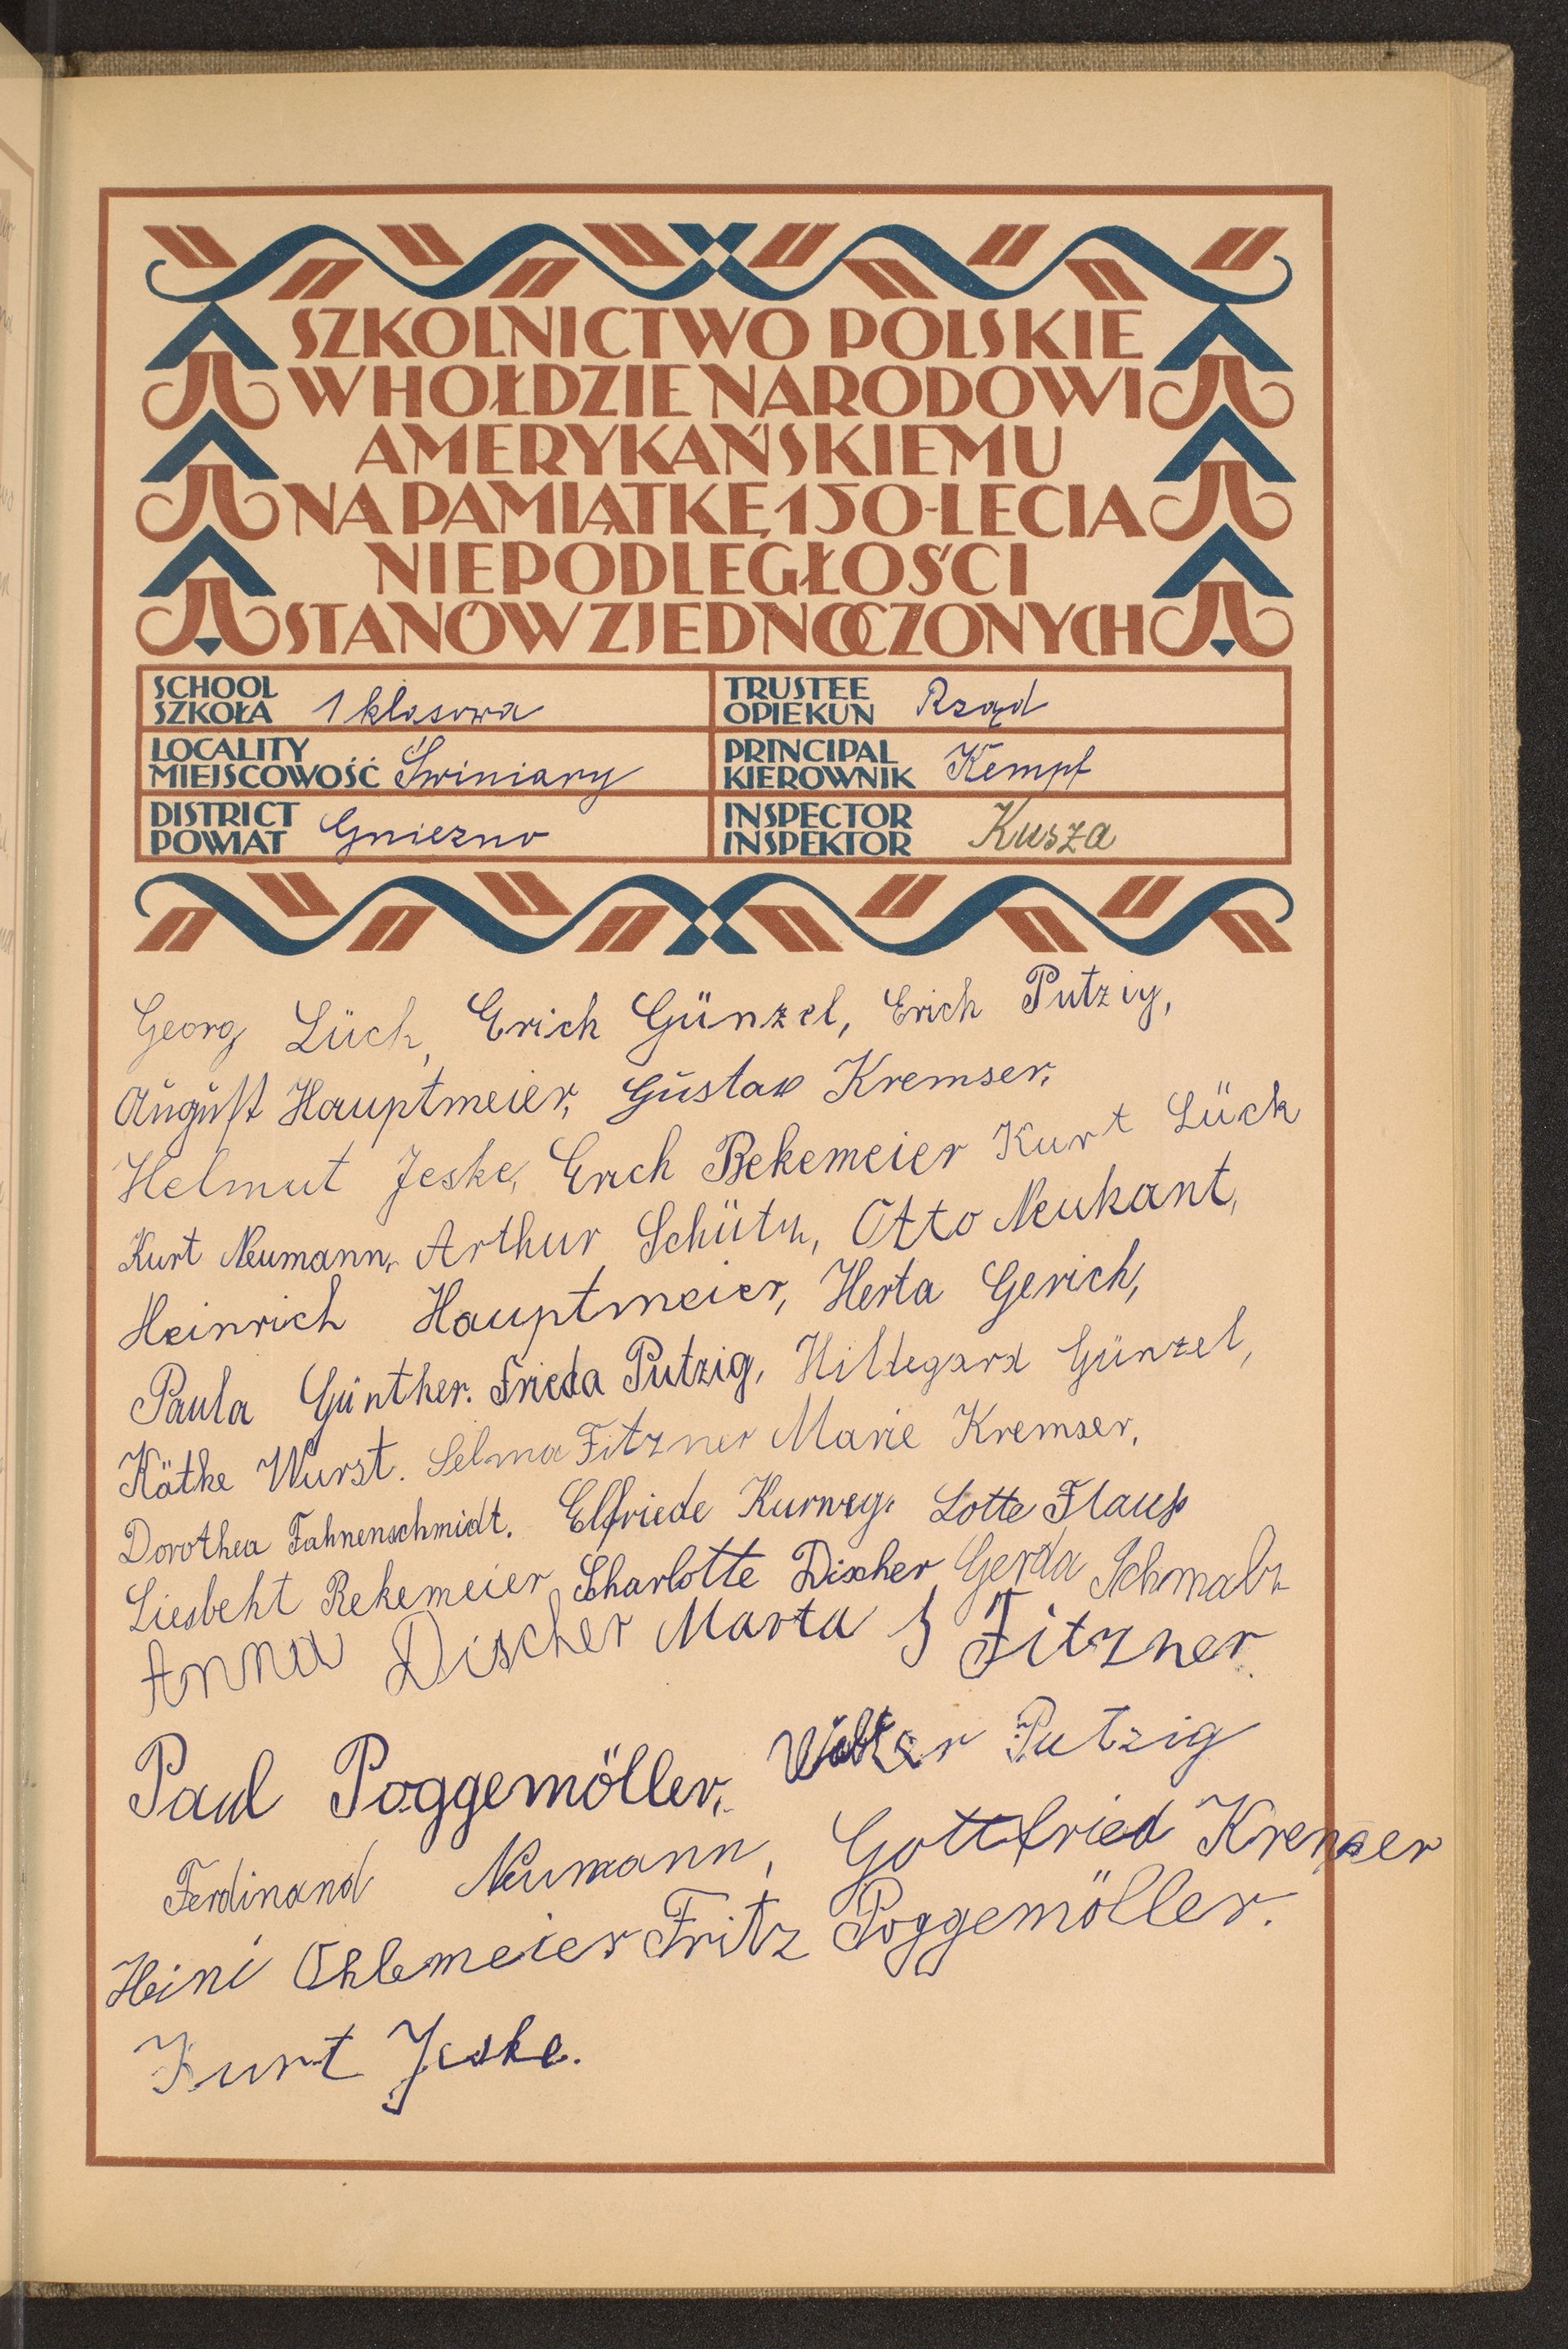 SZKOLNICTWO POLSKIE
W HOŁDZIE NARODOWI
AMERYKAŃSKIEMU
NA PAMIĄTKĘ 150-LECIA
NIEPODLEGŁOŚCI
STANÓW ZJEDNOCZONYCH
SCHOOL
SZKOŁA 1 klasowa
TRUSTEE
OPIEKUN Rząd
LOCALITY
MIEJSCOWOŚĆ Świniary
PRINCIPAL
KIEROWNIK Kempf
DISTRICT
POWIAT Gniezno
INSPECTOR
INSPEKTOR Kusza
Georg Lück, Erich Günzel, Erich Putzig,
August Hauptmeier, Gustav Kremser,
Helmut Jeske, Erich Rekemeier Kurt Lück
Kurt Neumann, Arthur Schütz, Otto Neukant,
Heinrich Hauptmeier, Herta Gerich,
Paula Günther. Frieda Putzig, Hildegard Günzel,
Käthe Wurst. Selma Fitzner Marie Kremser,
Dorothea Fahnenschmidt. Elfriede Kurweg. Lotte
Liesbeht Rekemeier Charlotte Discher Gerda Schmalz
Anna Discher Marta Fitzner
Paul Poggemöller, Putzig
Ferdinand Neumann, Gottfried Kremser
Heini Ohlemeier Fritz Poggemöller.
Kurt Jeske.